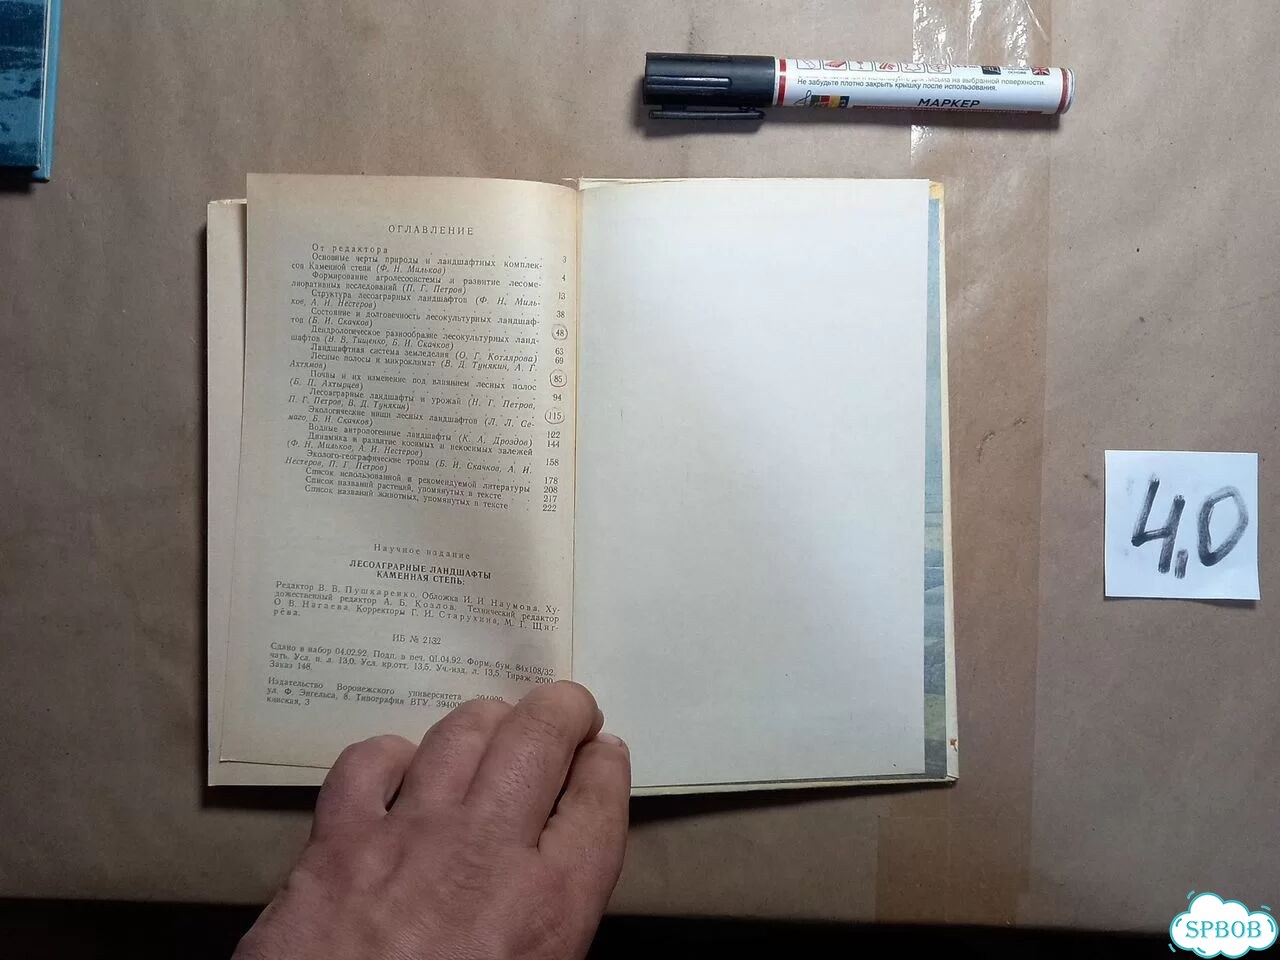 Не забудьте плотно закрыть крышку после использования.
МАРКЕР
ОГЛАВЛЕНИЕ
От редактора 3
Основные черты природы и ландшафтных комплек-
сов Каменной степи (Ф. Н. Мильков) 4
Формирование агролесосистемы и развитие лесоме-
лиоративных исследований (П. Г. Петров) 13
Структура лесоаграрных ландшафтов (Ф. Н. Миль-
ков, А. И. Нестеров) 38
Состояние и долговечность лесокультурных ландшаф-
тов (Б. И. Скачков) 48
Дендрологическое разнообразие лесокультурных ланд-
шафтов (В. В. Тищенко, Б. И. Скачков) 63
Ландшафтная система земледелия (О. Г. Котлярова) 69
Лесные полосы и микроклимат (В. Д. Тунякин, А. Г.
Ахтямов) 85
Почвы и их изменение под влиянием лесных полос
(Б. П. Ахтырцев) 94
Лесоаграрные ландшафты и урожай (Н. Г. Петров,
П. Г. Петров, В. Д. Тунякин) 115
Экологические ниши лесных ландшафтов (Л. Л. Се-
маго, Б. И. Скачков) 122
Водные антропогенные ландшафты (К. А. Дроздов) 144
Динамика и развитие косимых и некосимых залежей
(Ф. Н. Мильков, А. И. Нестеров) 158
Эколого-географические тропы (Б. И. Скачков, А. И.
Нестеров, П. Г. Петров) 178
Список использованной и рекомендуемой литературы 208
Список названий растений, упомянутых в тексте 217
Список названий животных, упомянутых в тексте 222
Научное издание
ЛЕСОАГРАРНЫЕ ЛАНДШАФТЫ
КАМЕННАЯ СТЕПЬ:
Редактор В. В. Пушкаренко. Обложка И. И. Наумова. Ху-
дожественный редактор А. Б. Козлов. Технический редактор
О. В. Нагаева. Корректоры Г. И. Старухина, М. Г. Щиг-
рёва.
ИБ № 2132
Сдано в набор 04.02.92. Подп. в печ. 01.04.92. Форм. бум. 84х108/32.
Усл. п. л. 13,0. Усл. кр.отт. 13,5. Уч.-изд. л. 13,5. Тираж 2000.
Заказ 148.
Издательство Воронежского университета
ул. Ф. Энгельса, 8. Типография ВГУ.
4,0
SPBOB